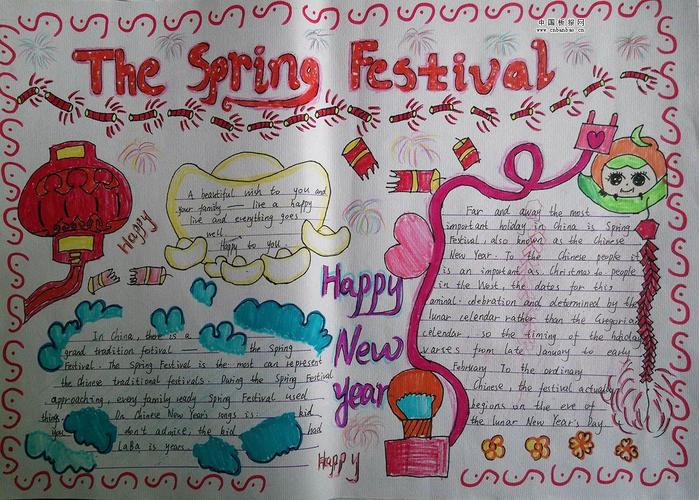 中国板报网
www.cnbanbao.cn
The Spring Festival
A beautiful wish to you and
your family —— live a happy
live and everything goes
well.
Happy to you.
Happy
Far and away the most
important holiday in China is Spring
Festival, also known as the Chinese
New Year. To the Chinese people it
is an important as Christmas to people
in the West, the dates for this
annial celebration and determined by the
lunar celendar rather than the Gregorian
celendar, so the timing of the holiday
varses from late January to early
February. To the ordinary
Chinese, the festival actually
begins on the eve of
the lunar New Year's Day
Happy
New
year
In China, there is a
grand tradition fstival —— the Spring
Festival. The Spring Festival is the most can represent
the Chinese traditional festivals. During the Spring Festival
approaching, every family ready Spring Festival used
things. On Chinese New Year's songs is: kid
you don't admice, the kid had
LaBa is years.
Happy